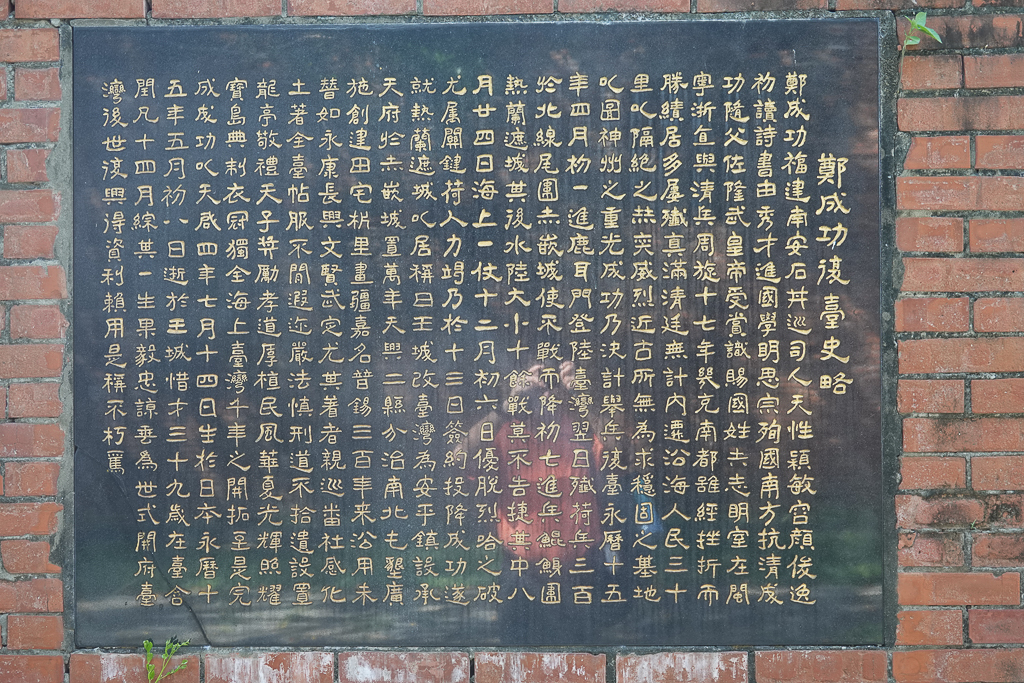 鄭成功復臺史略
鄭成功福建南安石井巡司人天性穎敏容顏俊逸
初讀詩書由秀才進國學明思宗殉國南方抗清成
功隨父佐隆武皇帝受賞識賜國姓士志明室在閩
粵浙亙與清兵周旋十七年幾克南都雖經挫折而
勝績居多屢殲真滿清廷無計內遷沿海人民三十
里以隔絕之其奕威烈近古所無為求穩固之基地
以圖神州之重光成功乃決計舉兵復臺永曆十五
年四月初一進鹿耳門登陸臺灣翌日殲荷兵三百
於北線尾圍赤嵌城使不戰而降初七進兵鯤鯓圍
熱蘭遮城其後水陸大小十餘戰莫不告捷其中八
月廿四日海上一仗十二月初六日優脫烈哈之破
尤屬關鍵荷人力竭乃於十三日簽約投降成功遂
就熱蘭遮城以居稱曰王城改臺灣為安平鎮設承
天府於赤嵌城置萬年天興二縣分治南北屯墾廣
施創建田宅析里畫疆嘉名普錫三百年來沿用未
替如永康長興文賢武定尤其著者親巡番社感化
土著全臺帖服不閒遐迩嚴法慎刑道不拾遺設置
龍亭敬禮天子莽勵孝道厚植民風華夏光輝照耀
寶島典制衣冠獨全海上臺灣千年之開拓至是完
成成功以天啟四年七月十四日生於日本永曆十
五年五月初八日逝於王城惜才三十九歲在臺含
閏凡十四月綜其一生果毅忠諒垂為世式開府臺
灣後世復興得資利賴用是稱不朽焉